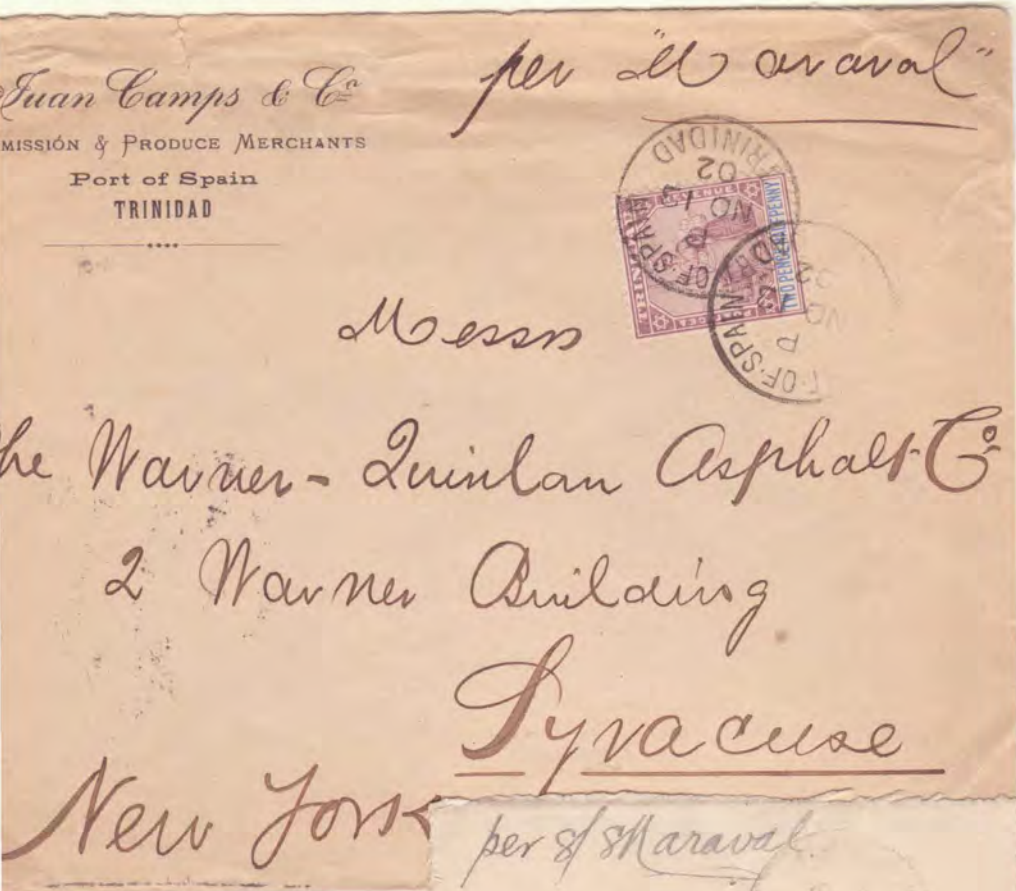 Juan Camps & Co
MISSIÓN & PRODUCE MERCHANTS
Port of Spain
TRINIDAD
per "Maraval"
TRINIDAD
NO 13
02
OF·SPAIN
TRINIDAD
REVENUE
TWO PENCE HALFPENNY
T·OF·SPAIN
NO
D
Messrs
he Warner-Quinlan Asphalt Co
2 Warner Building
Syracuse
New York
per s/s Maraval